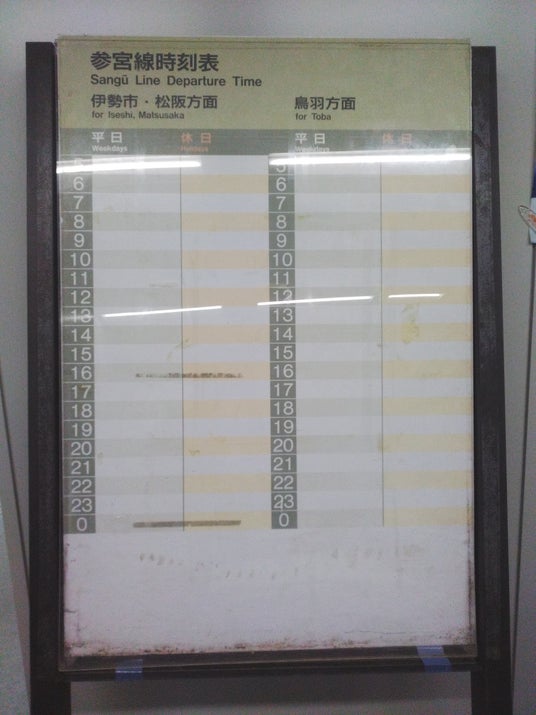 参宮線時刻表
Sangū Line Departure Time
伊勢市・松阪方面
for Iseshi, Matsusaka
鳥羽方面
for Toba
平日 休日 平日 休日
Weekdays Holidays Weekdays
5 5
6 6
7 7
8 8
9 9
10 10
11 11
12 12
13 13
14 14
15 15
16 16
17 17
18 18
19 19
20 20
21 21
22 22
23 23
0 0